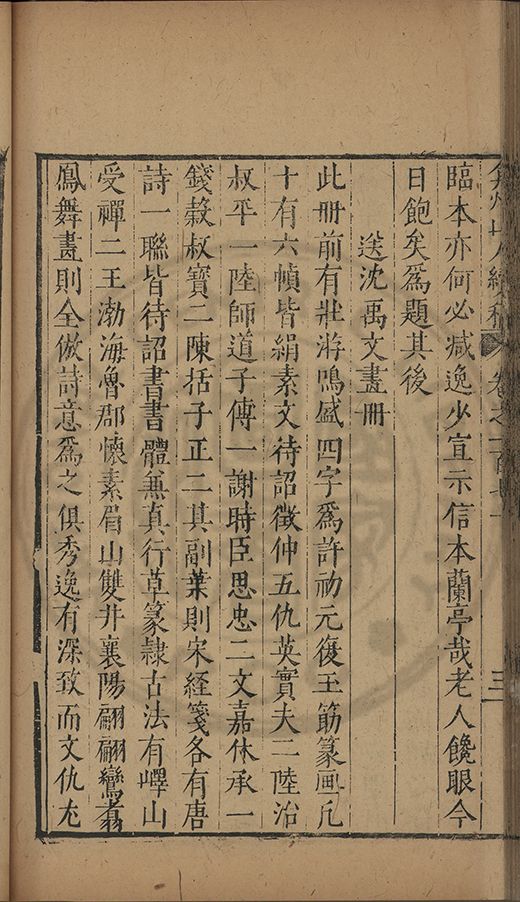 弇州山人續稿 卷之一百七十 三
臨本亦何必減逸少宣示信本蘭亭哉老人饞眼今
日飽矣爲題其後
送沈禹文畫冊
此冊前有壯游鳴盛四字爲許初元復玉筯篆画凢
十有六幀皆絹素文待詔徵仲五仇英實夫二陸治
叔平一陸師道子傳一謝時臣思忠二文嘉休承一
錢榖叔寶二陳括子正二其副葉則宋経箋各有唐
詩一聯皆待詔書書體兼真行草篆隷古法有嶧山
受禪二王渤海魯郡懷素眉山雙井襄陽翩翩鸞翥
鳳舞畫則全倣詩意爲之俱秀逸有深致而文仇尤